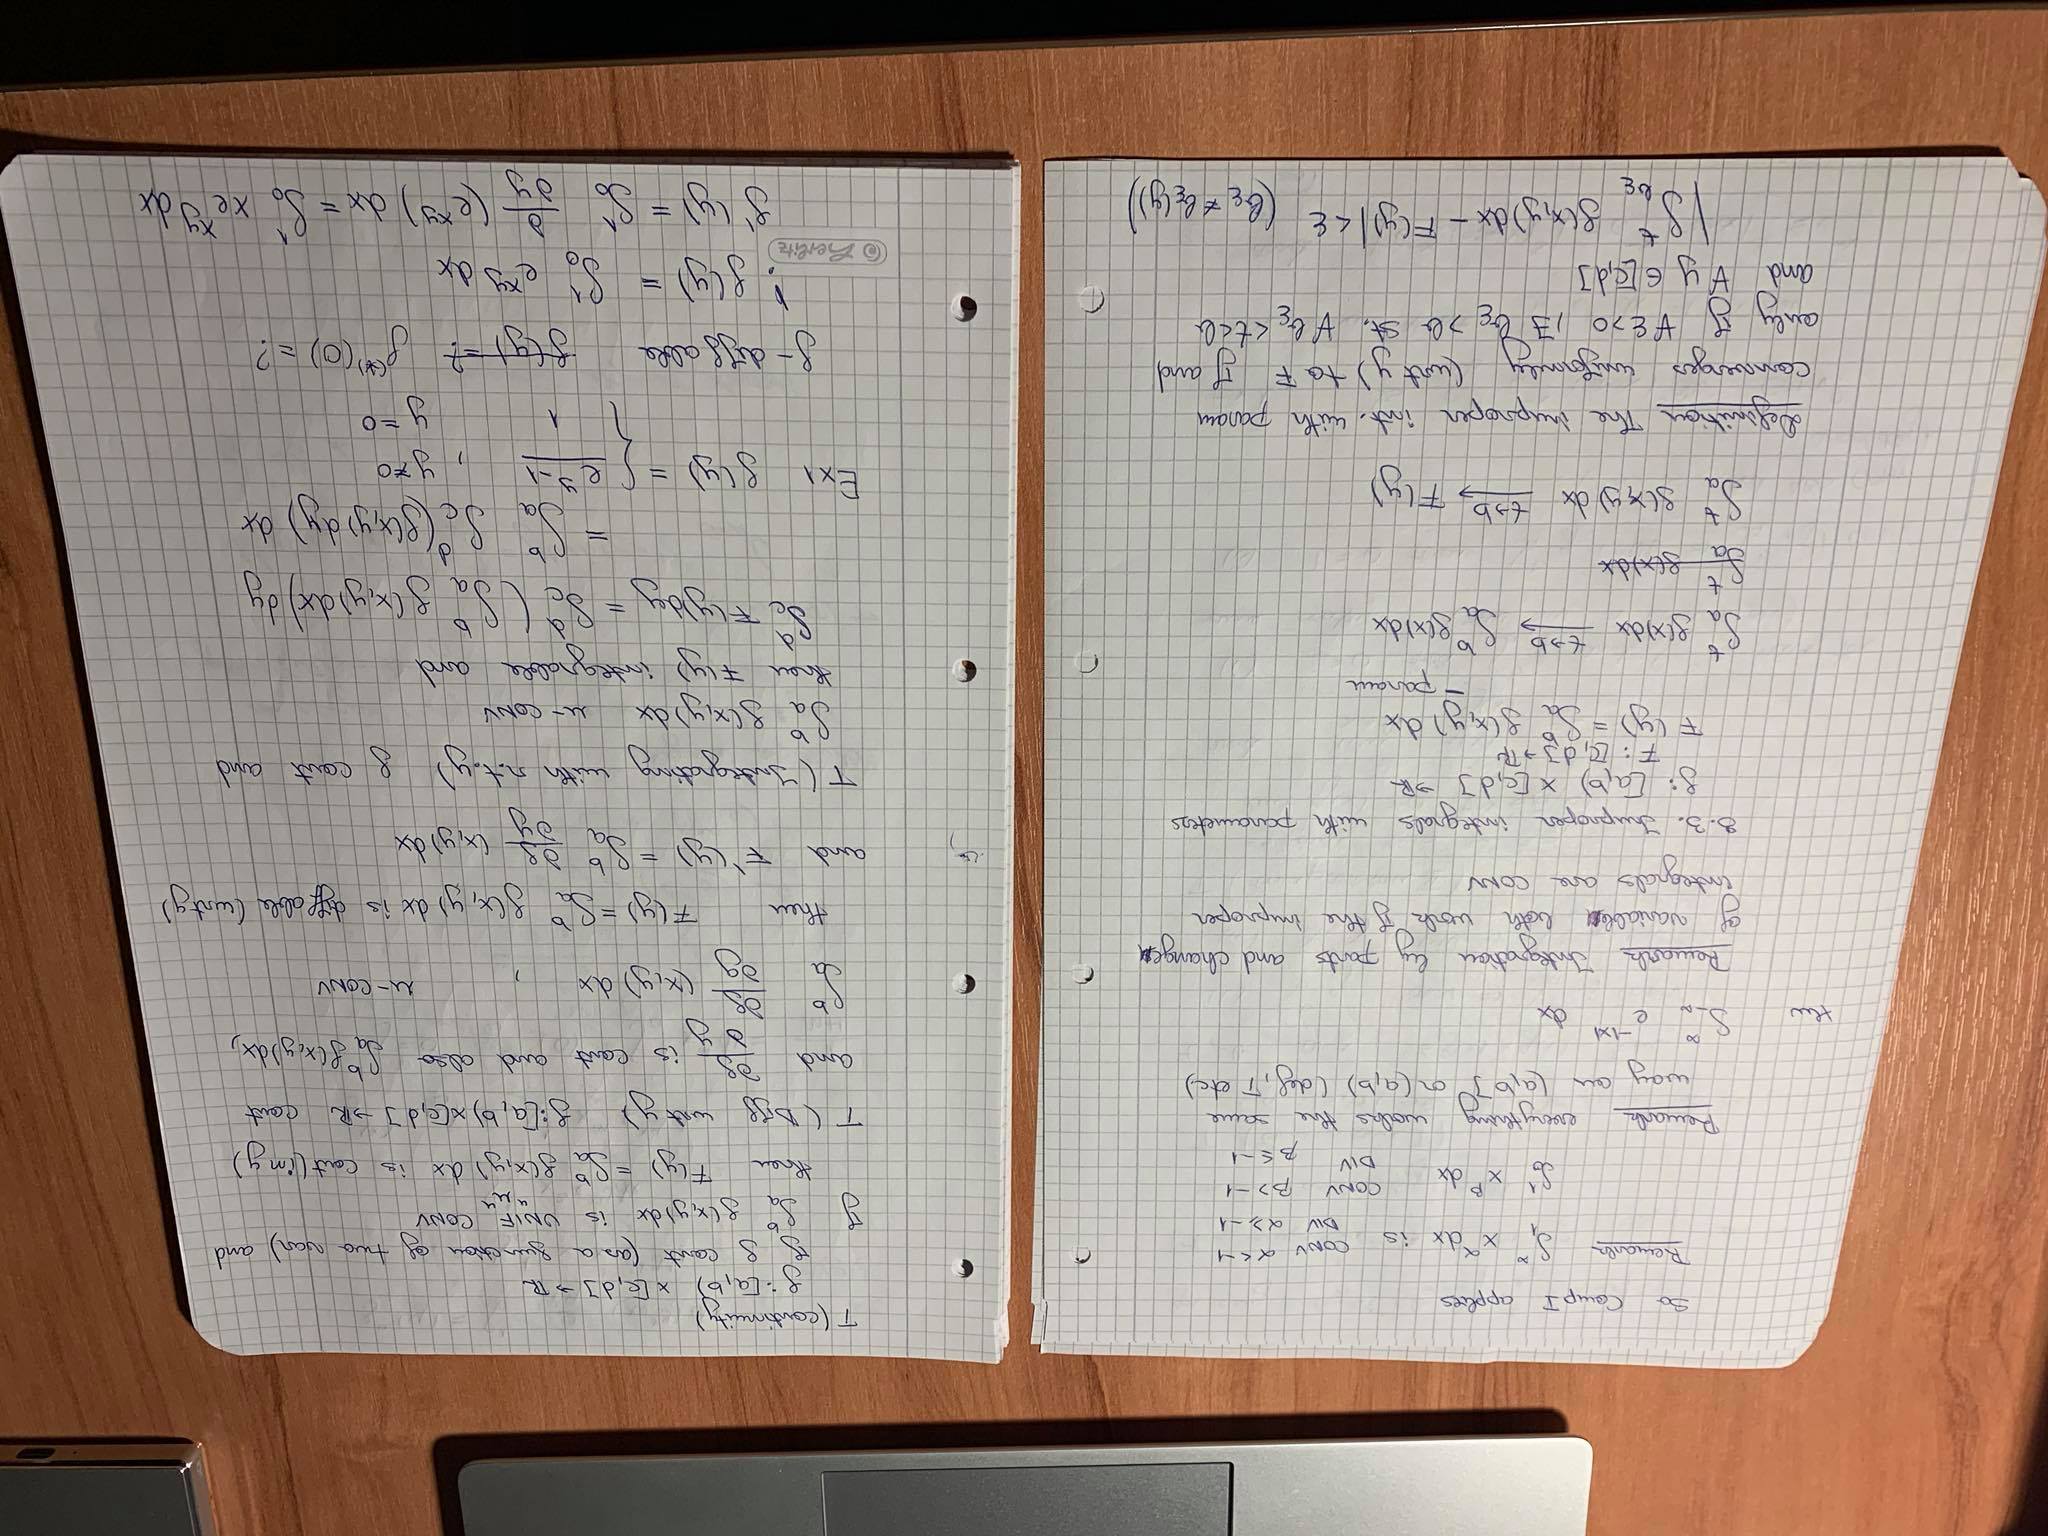 So Comp I applies
Remark ∫₁^∞ x^α dx is CONV α<-1
DIV α≥-1
∫₀¹ x^β dx CONV β>-1
DIV β≤-1
Remark everything works the same
way on (a,b] or (a,b) (def, T etc)
∫_{-∞}^∞ e^{-|x|} dx
Remark Integration by parts and change
of variable both work if the improper
integrals are CONV
3.3. Improper integrals with parameters
f: [a,b) × [c,d] → ℝ
F: [c,d] → ℝ
F(y) = ∫_a^b f(x,y) dx
- param
∫_a^t f(x)dx —t→b→ ∫_a^b f(x)dx
∫_a^t f(x)dx
∫_a^t f(x,y) dx —t→b→ F(y)
Definition The improper int. with param
converges uniformly (wrt y) to F if and
only if ∀ε>0, ∃ b_ε>b st. ∀ b_ε<t<b
and ∀ y ∈ [c,d]
|∫_{b_ε}^t f(x,y)dx - F(y)| < ε (b_ε ≠ b_ε(y))
T (continuity)
f: [a,b) × [c,d] → ℝ
If f cont (as a function of two var) and
if ∫_a^b f(x,y)dx is UNIF CONV
"u"
then F(y) = ∫_a^b f(x,y) dx is cont (in y)
T (Diff wrt y) f: [a,b) × [c,d] → ℝ cont
and ∂f/∂y is cont and also ∫_a^b f(x,y)dx,
∫_a^b ∂f/∂y (x,y) dx , u-CONV
then F(y) = ∫_a^b f(x,y) dx is diffable (wrt y)
and F'(y) = ∫_a^b ∂f/∂y (x,y) dx
T (Integrating with r.t. y) f cont and
∫_a^b f(x,y)dx u-CONV
then F(y) integrable and
∫_c^d F(y)dy = ∫_c^d (∫_a^b f(x,y)dx) dy
= ∫_a^b ∫_c^d (f(x,y) dy) dx
Ex1 f(y) = { e^y-1 , y≠0
1 y=0
f-diffable f(y)=? f^(k)(0)=?
! f(y) = ∫₀¹ e^{xy} dx
© Herlitz
f'(y) = ∫₀¹ ∂/∂y (e^{xy}) dx = ∫₀¹ xe^{xy} dx